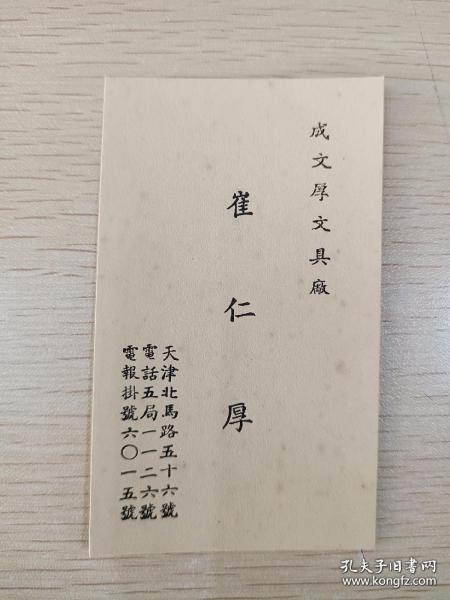 成文厚文具廠
崔仁厚
天津北馬路五十六號
電話五局一一二六號
電報掛號六〇一五號
孔夫子旧书网
www.kongfz.com